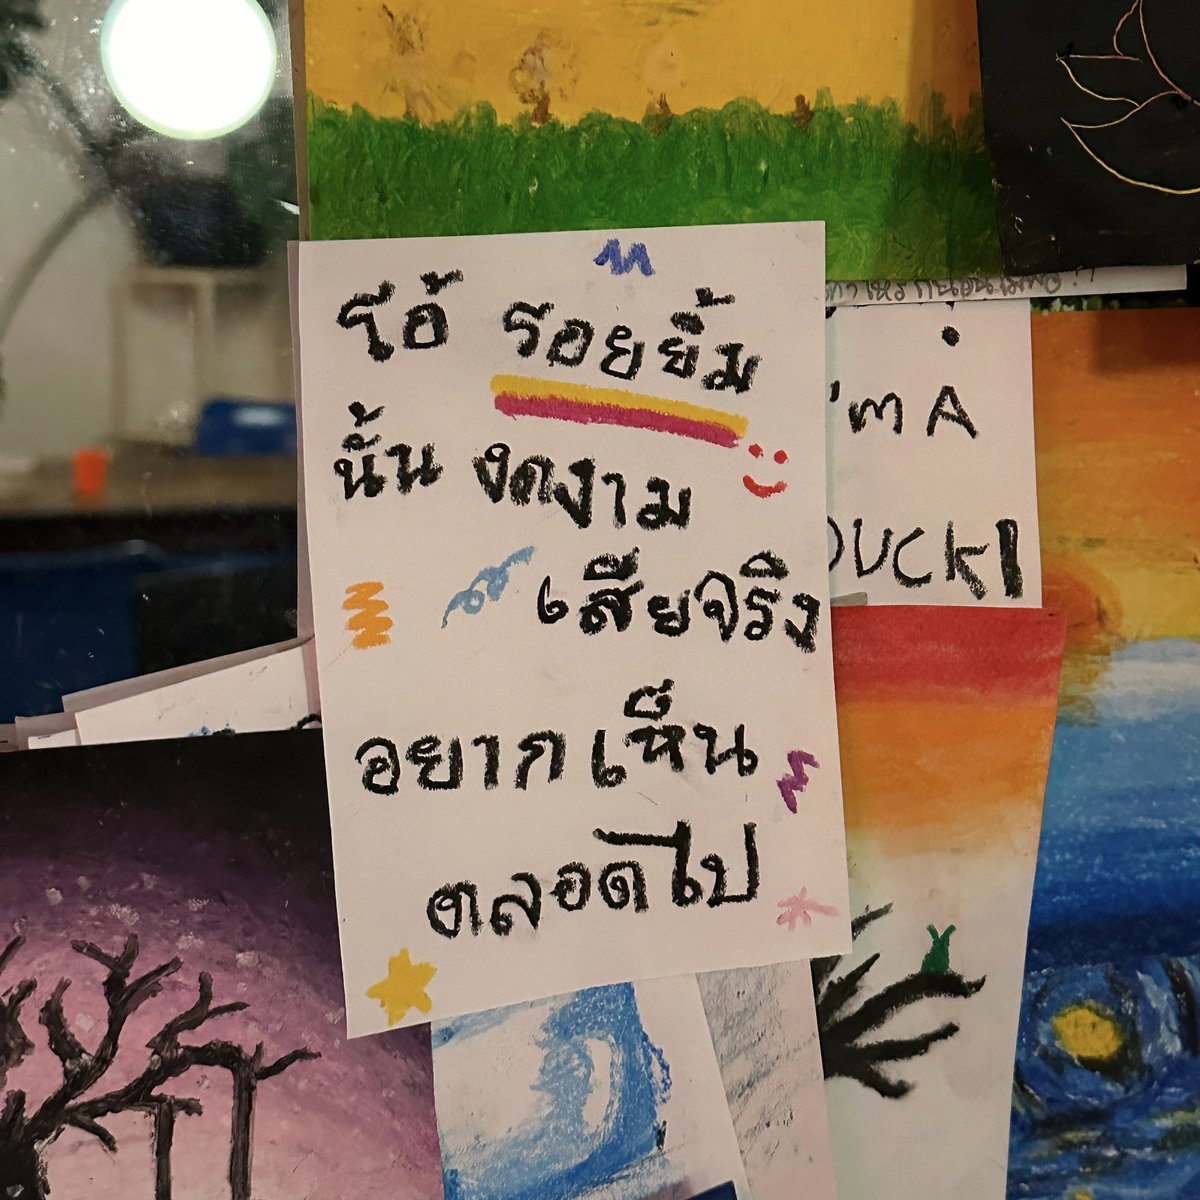 โอ้ รอยยิ้ม
นั้น งดงาม
เสียจริง
อยากเห็น
ตลอดไป
'M A
DUCK!